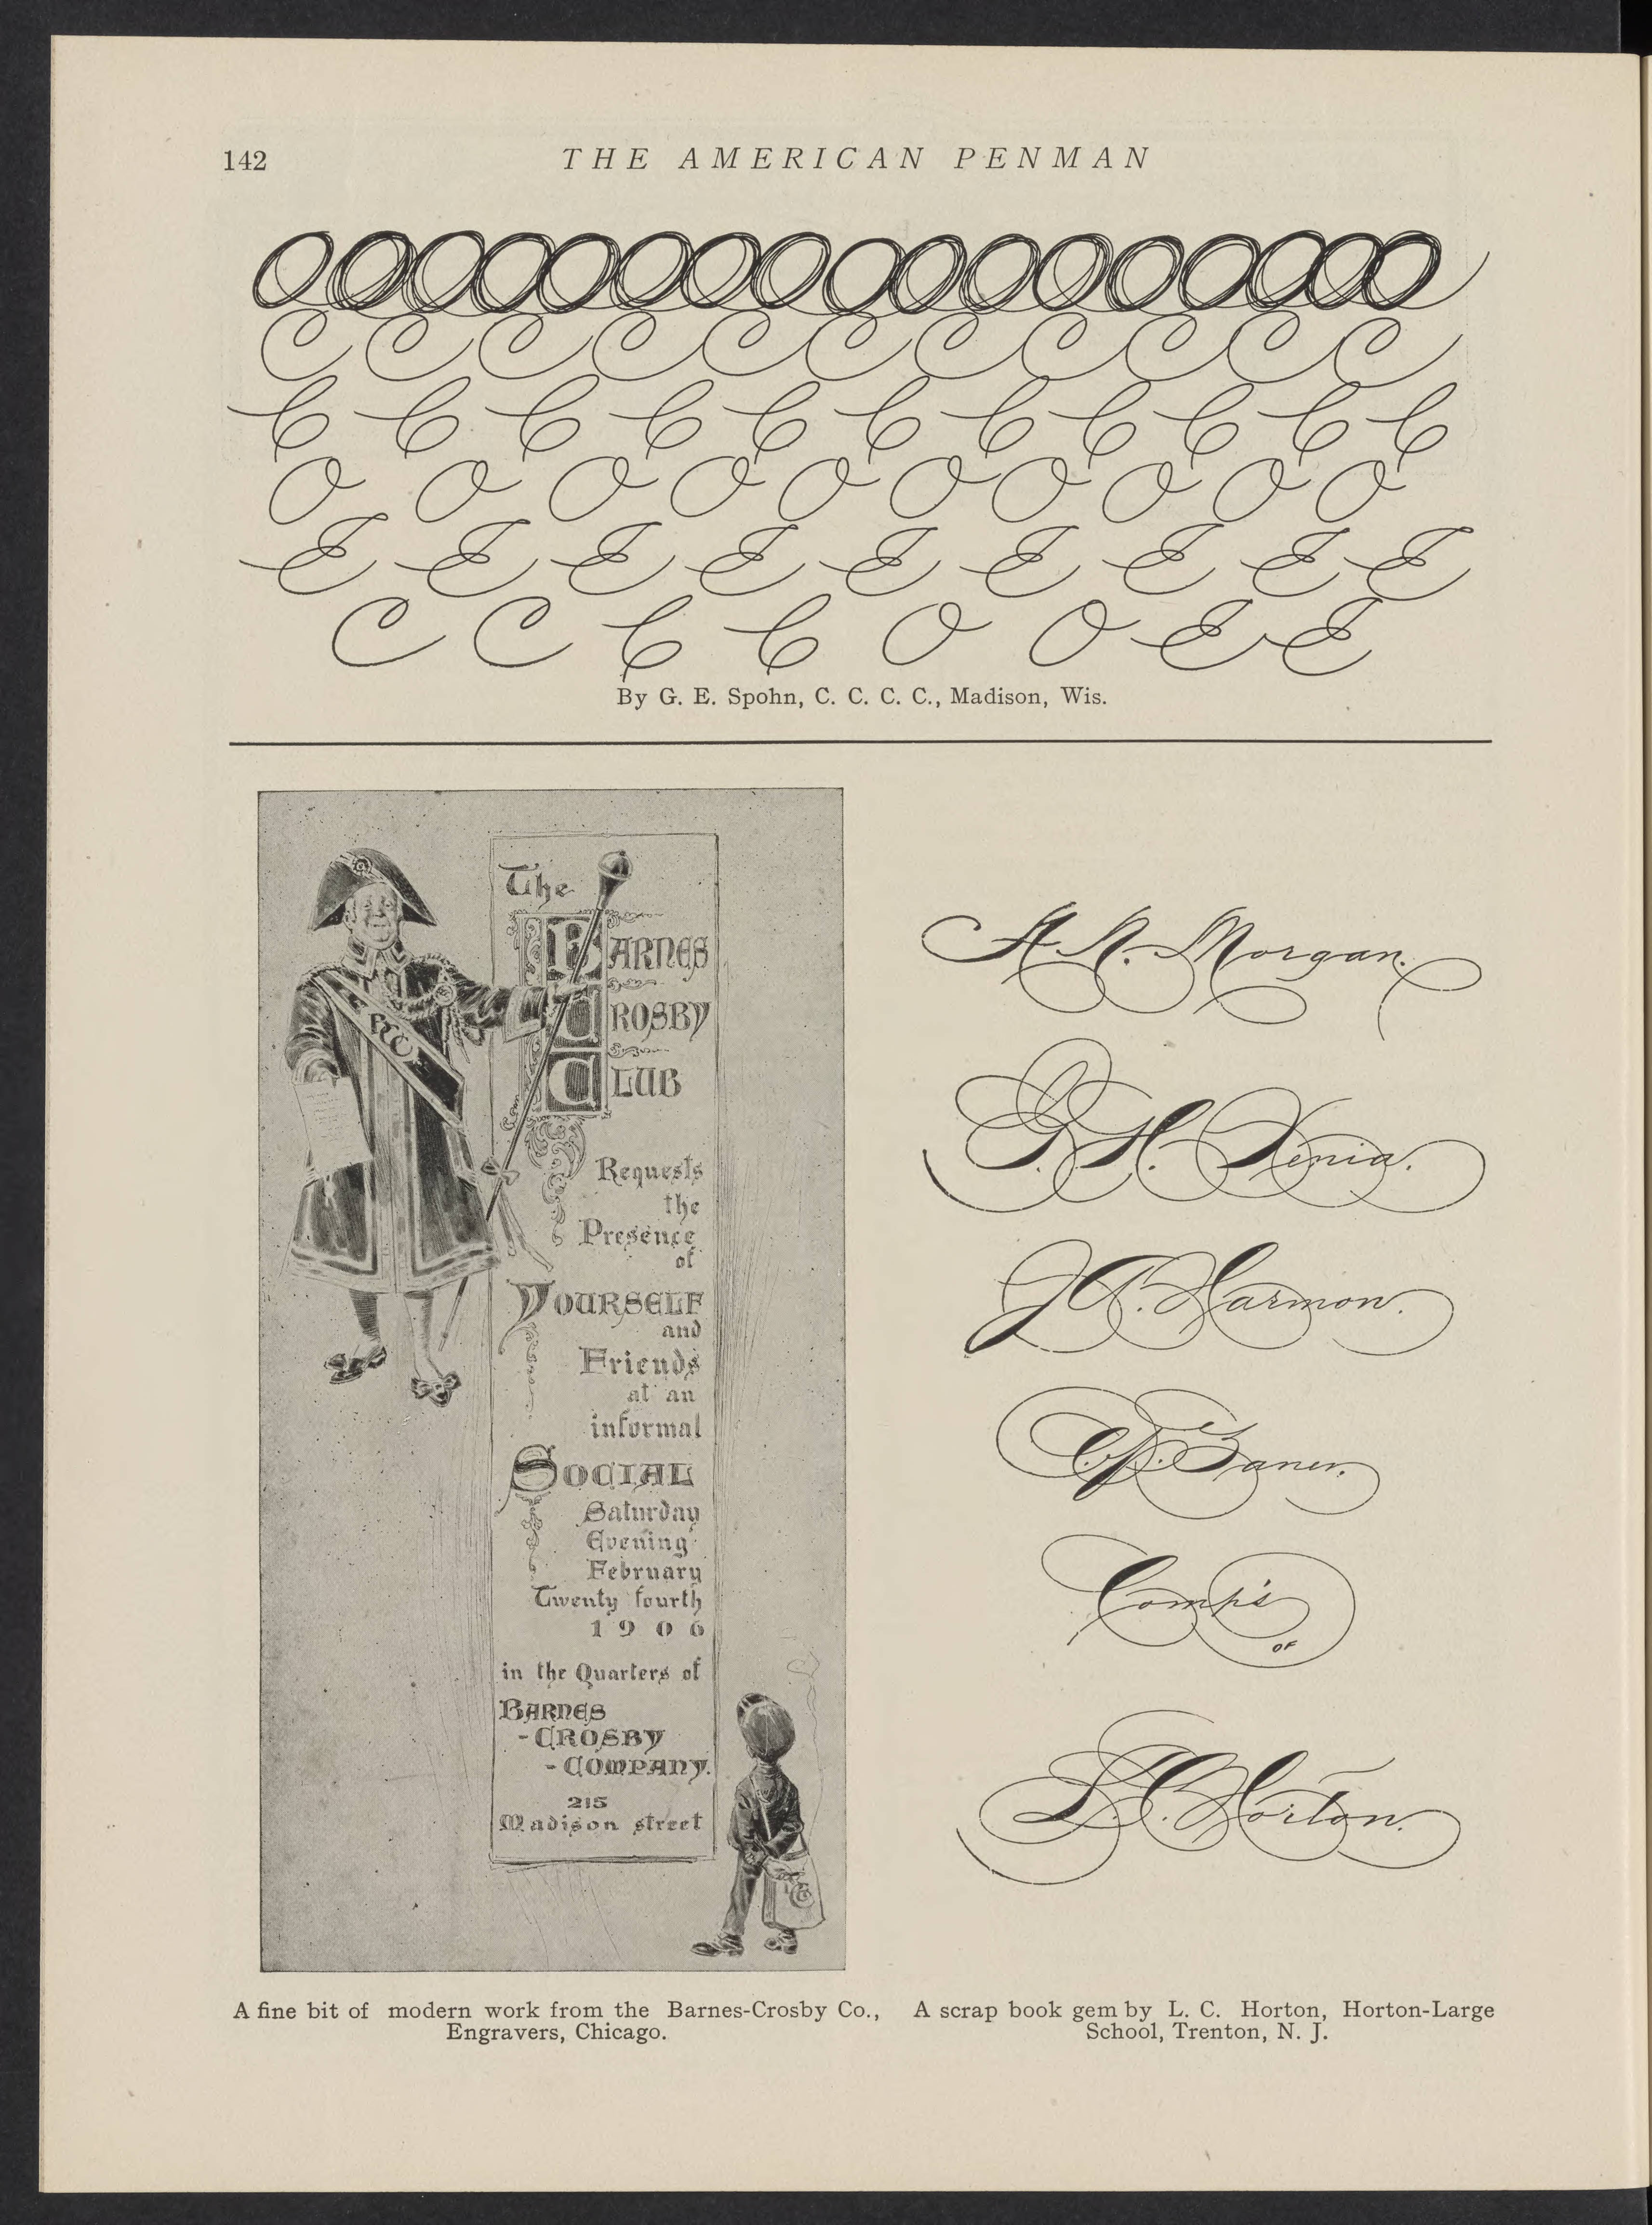 142
THE AMERICAN PENMAN
C C C C C C C C C C C
C C C C C C C C C C C
O O O O O O O O O O
E E E E E E E E E
C C C C O O E E
By G. E. Spohn, C. C. C. C., Madison, Wis.
The
BARNES
CROSBY
CLUB
BCC
Requests
the
Presence
of
YOURSELF
and
Friends
at an
informal
SOCIAL
Saturday
Evening
February
Twenty fourth
1906
in the Quarters of
BARNES
-CROSBY
-COMPANY.
215
Madison street
A fine bit of modern work from the Barnes-Crosby Co.,
Engravers, Chicago.
A. N. Morgan.
G. H. Xenia.
J. P. Harmon.
C. P. Zaner.
Comp's
OF
L. C. Horton.
A scrap book gem by L. C. Horton, Horton-Large
School, Trenton, N. J.